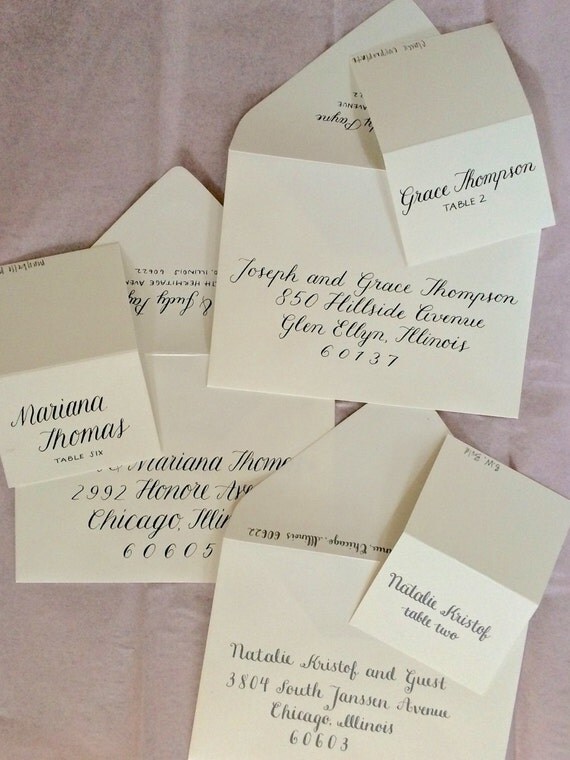 Classic Copperplate
Payne
AVENUE
22
Grace Thompson
TABLE 2
Joseph and Grace Thompson
850 Hillside Avenue
Glen Ellyn, Illinois
60137
& Judy
HERMITAGE
ILLINOIS 60622
Mariana
Thomas
TABLE SIX
& Mariana
2992 Honore
Chicago,
60605
Chicago, Illinois 60622
Natalie Kristof
table two
Natalie Kristof and Guest
3804 South Janssen Avenue
Chicago, Illinois
60603